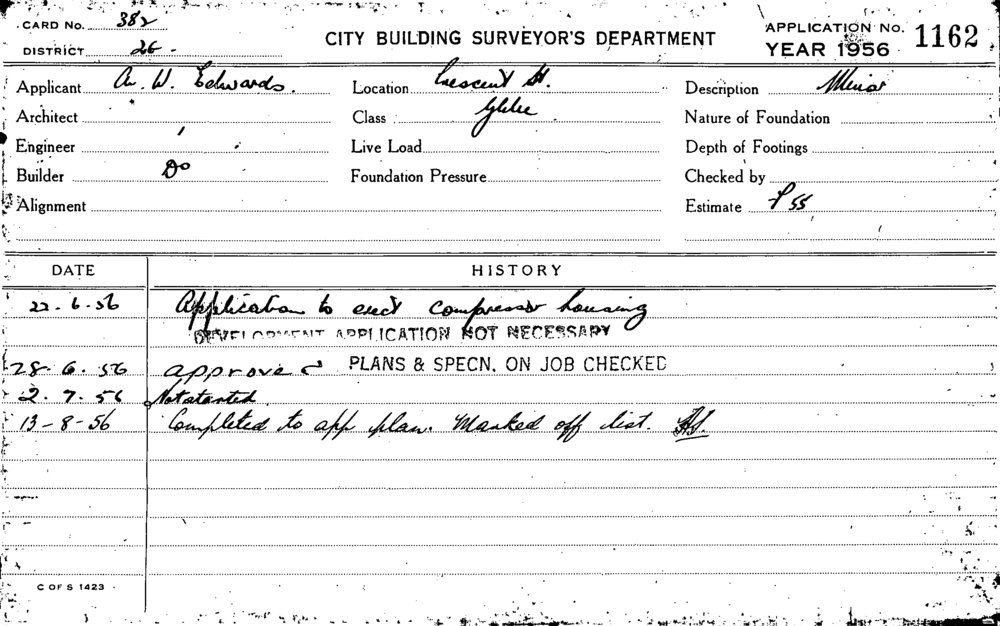 CARD No. 382
DISTRICT 26
CITY BUILDING SURVEYOR'S DEPARTMENT
APPLICATION No. 1162
YEAR 1956
Applicant A. W. Edwards. Location Crescent St. Description Minor
Architect Class Glebe Nature of Foundation
Engineer Live Load Depth of Footings
Builder Do Foundation Pressure Checked by
Alignment Estimate £55
DATE HISTORY
22-6-56 Application to erect compressor housing
DEVELOPMENT APPLICATION NOT NECESSARY
28-6-56 approved PLANS & SPECN. ON JOB CHECKED
2.7.56 Not started.
13-8-56 Completed to app plan. Marked off list.
C OF S 1423